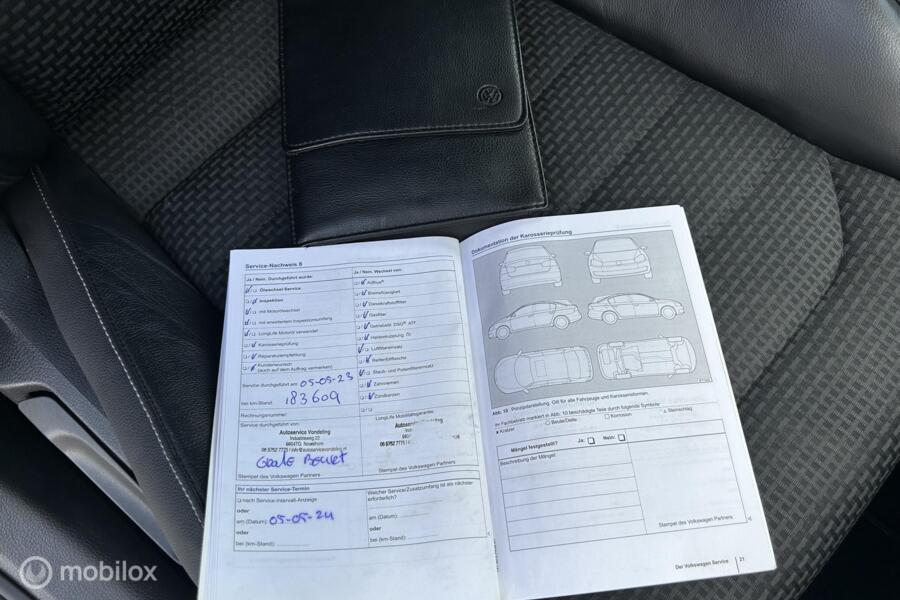 Service-Nachweis 8
Ja / Nein, Durchgeführt wurde:
Ölwechsel-Service
Inspektion
mit Motorölwechsel
mit erweitertem Inspektionsumfang
LongLife Motoröl verwendet
Karosserieprüfung
Reparaturempfehlung
Kundenwunsch
(auch auf dem Auftrag vermerken)
Service durchgeführt am: 05-05-23
bei km-Stand: 183609
Rechnungsnummer:
Service durchgeführt von:
Autoservice Vondeling
Industrieweg 22
Stempel des Volkswagen Partners
Ja / Nein, Wechsel von:
AdBlue®
Bremsflüssigkeit
Dieselkraftstofffilter
Gasfilter
Getriebeöl: DSG® ATF
Luftfiltereinsatz
Reifenfülflasche
Staub- und Pollenfiltereinsatz
Zahnriemen
Zündkerzen
LongLife Mobilitätsgarantie:
Stempel des Volkswagen Partners
Ihr nächster Service-Termin
nach Service-Intervall-Anzeige
oder
am (Datum): 05-05-24
oder
bei (km-Stand):
Welcher Service/Zusatzumfang ist als nächster
erforderlich?
am (Datum):
oder
bei (km-Stand):
Dokumentation der Karosserieprüfung
Abb. 10 Prinzipdarstellung: Gilt für alle Fahrzeuge und Karosserieformen.
beschädigte Teile durch folgende Symbole
Kratzer
Beule/Delle
Korrosion
Steinschlag
Mängel festgestellt?
Ja:
Nein:
Beschreibung der Mängel:
Stempel des Volkswagen Partners
Der Volkswagen Service 21
mobilox